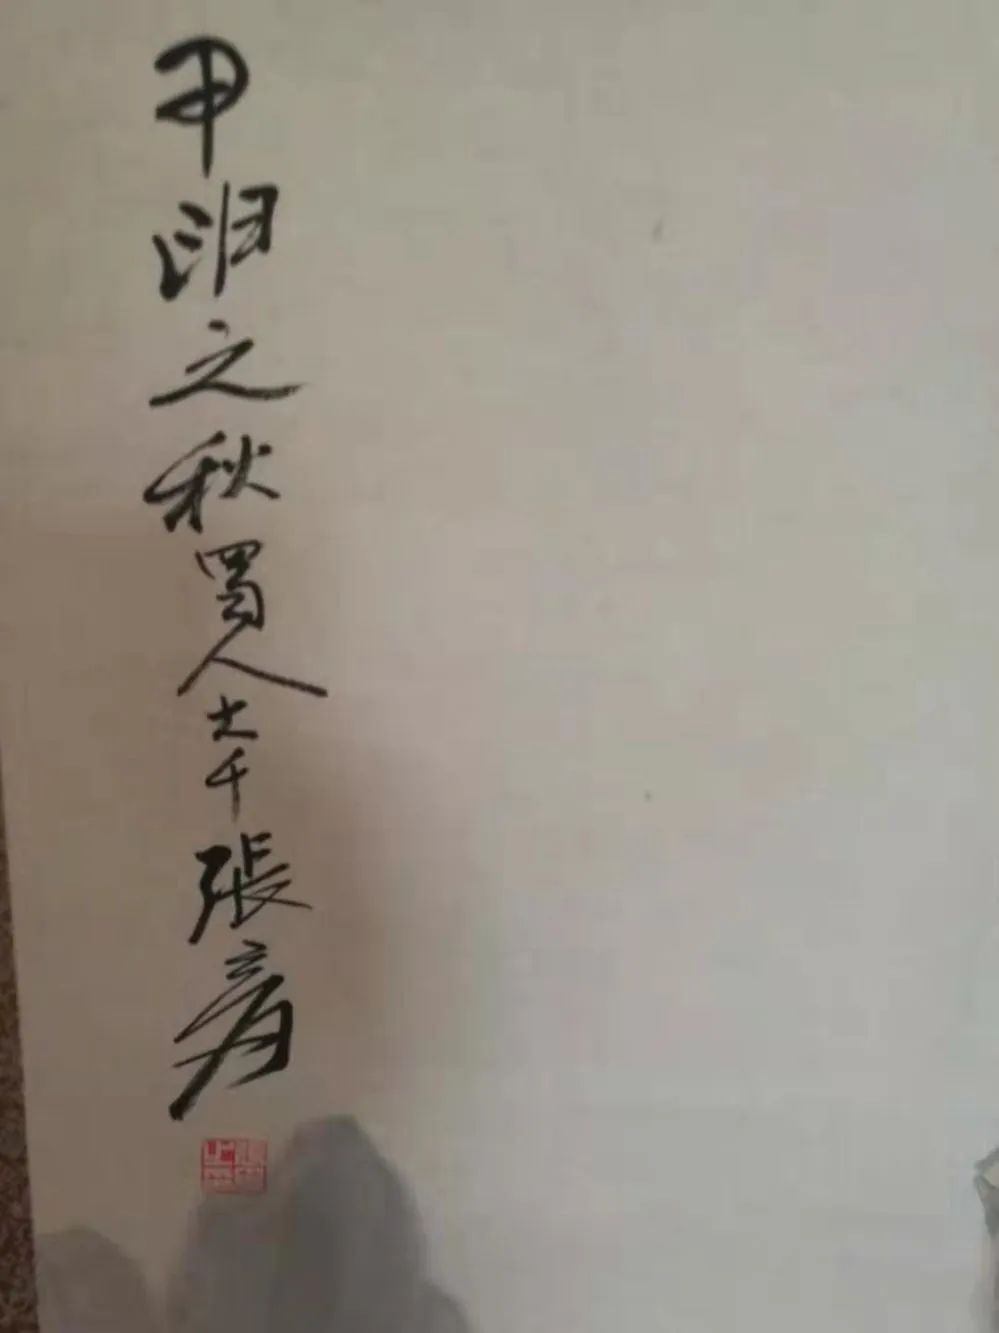 甲申之秋蜀人大千張爰